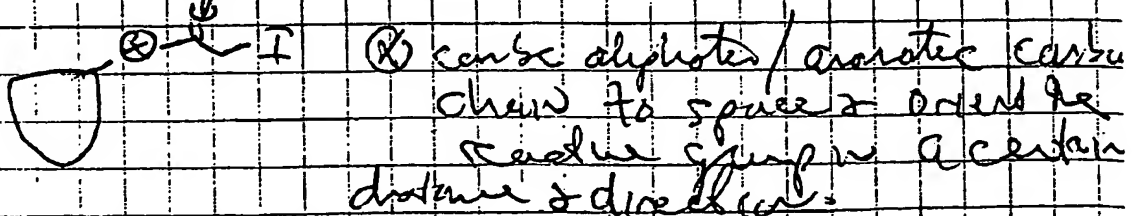 Ⓧ I Ⓧ can be aliphatic/aromatic carbon
chain to space & orient the
reactive group in a certain
distance & direction.